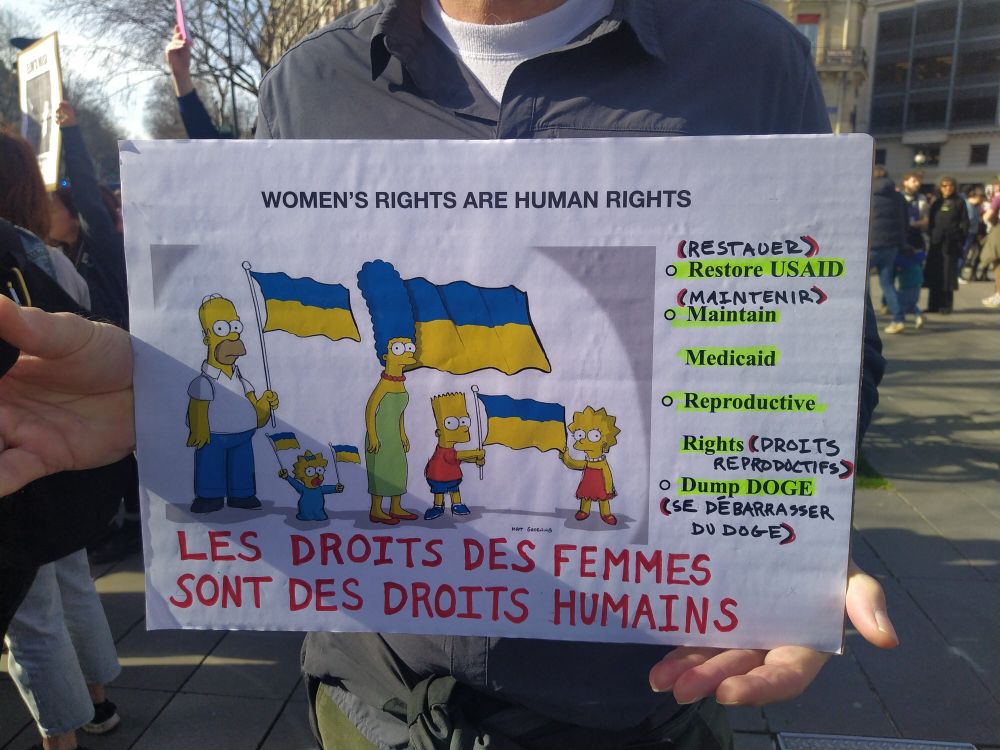 WOMEN'S RIGHTS ARE HUMAN RIGHTS
(RESTAUER)
Restore USAID
(MAINTENIR)
Maintain
Medicaid
Reproductive
Rights (DROITS
REPRODOCTIFS)
Dump DOGE
(SE DÉBARRASSER
DU DOGE)
MATT GROENING
LES DROITS DES FEMMES
SONT DES DROITS HUMAINS